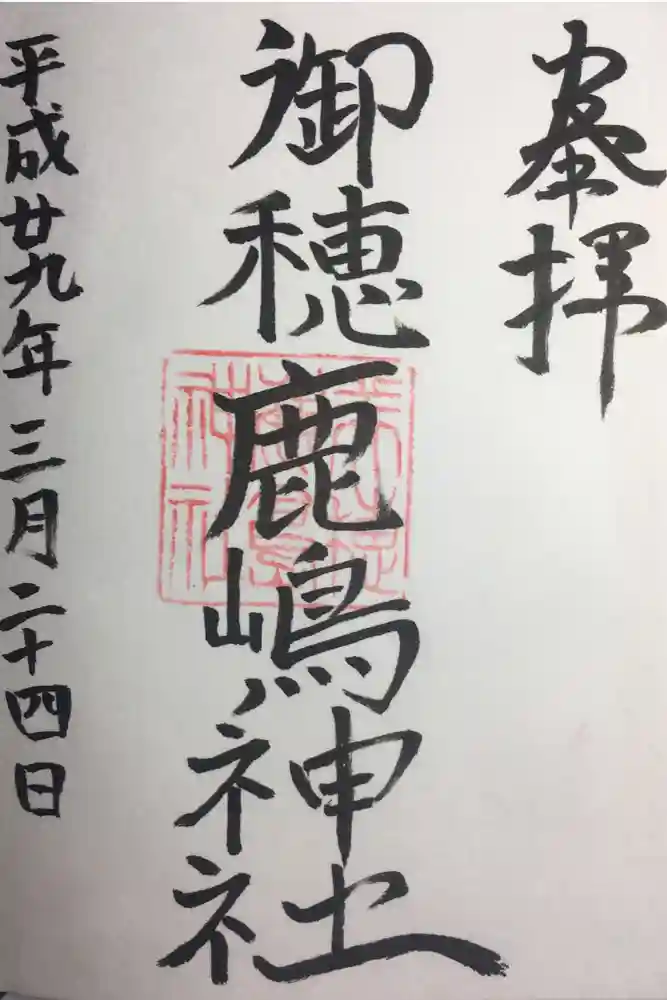 奉拝
御穂鹿嶋神社
平成廿九年三月二十四日